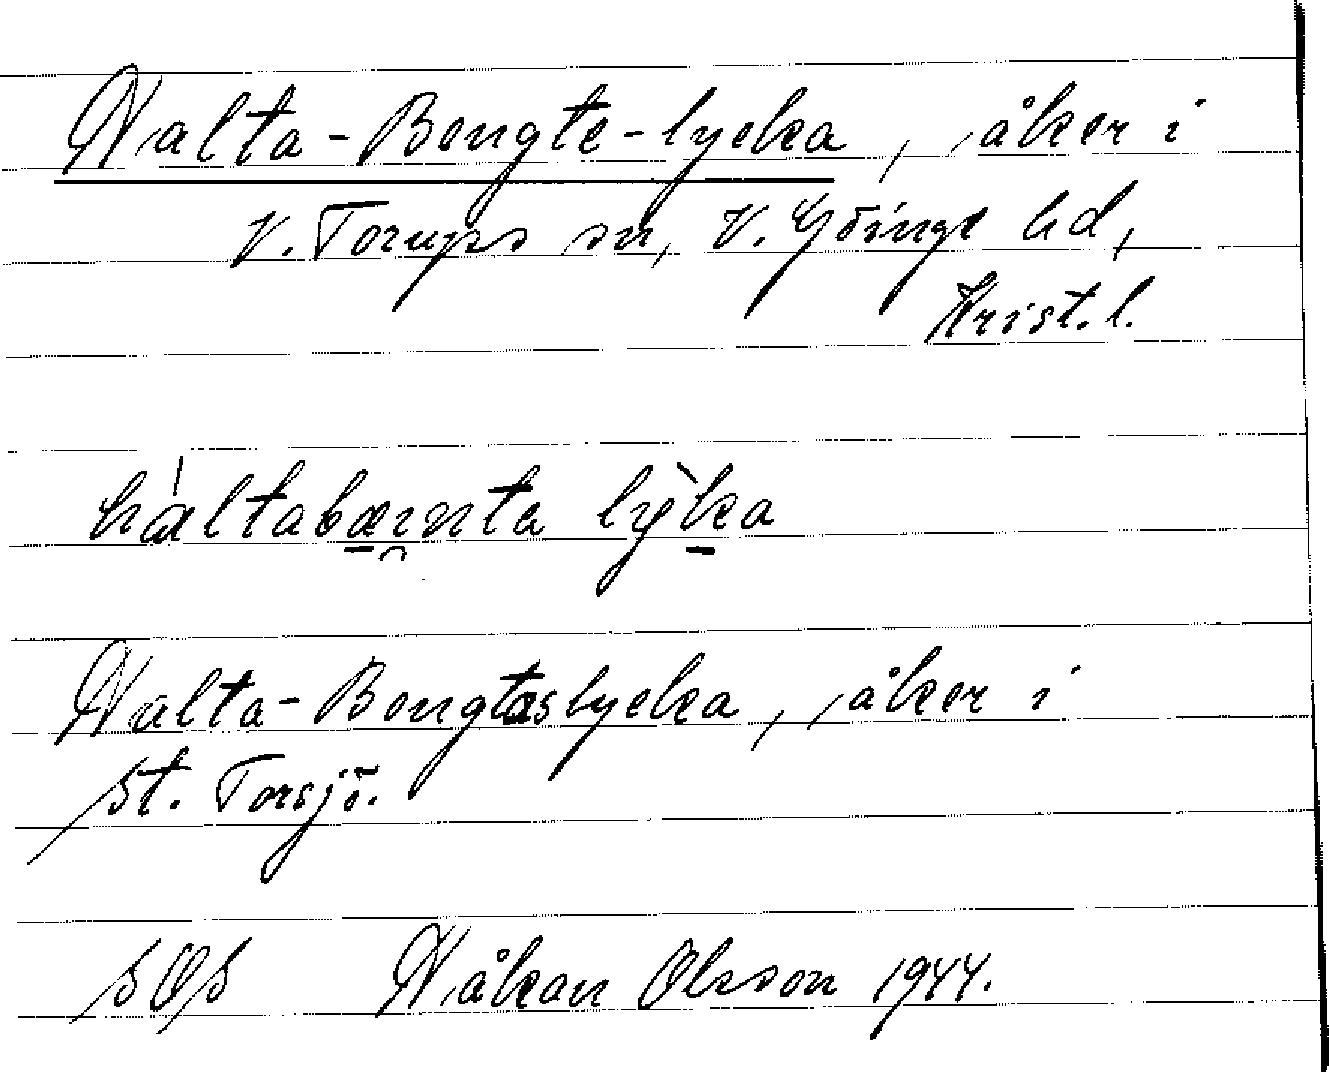 Halta-Bengte-lycka, åker i
V. Torups sn, V. Göinge hd,
Krist. l.
hàltabæṉta lỳḵa
Halta-Bengtaslycka, åker i
St. Torsjö.
SOS Håkan Olsson 1944.